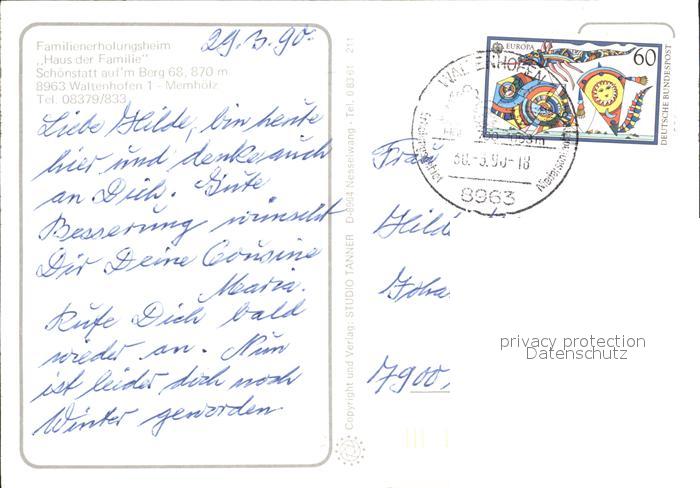 Familienerholungsheim
„Haus der Familie"
Schönstatt auf'm Berg 68, 870 m
8963 Waltenhofen 1 - Memhölz
Tel. 08379/833
29.3.90.
Liebe Hilde, bin heute
hier und denke auch
an Dich. Gute
Besserung wünscht
Dir Deine Cousine
Maria.
Rufe Dich bald
wieder an. Nun
ist leider doch noch
Winter geworden.
Copyright und Verlag: STUDIO TANNER D-8964 Nesselwang
211
EUROPA
60
DEUTSCHE BUNDESPOST
WALTENHOFEN
30.-3.90-18
8963
Frau
Hilde
Joha
7900,
privacy protection
Datenschutz